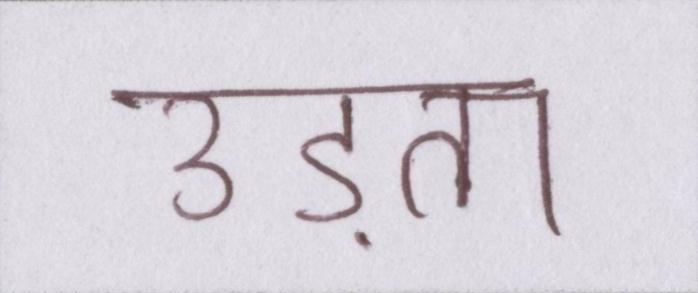 उड़ता